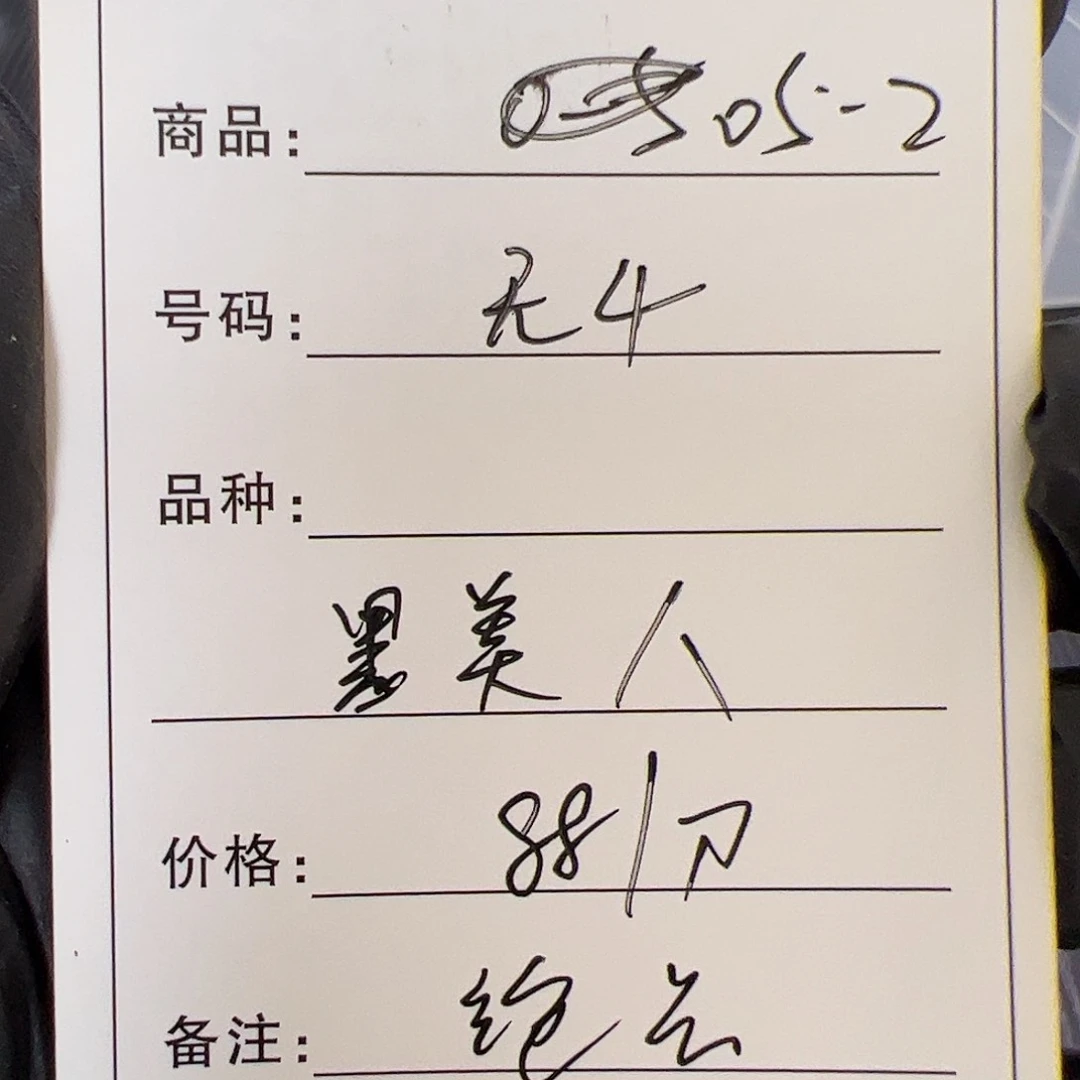 商品: 05-2
号码: 无4
品种:
黑美人
价格: 88/刀
备注: